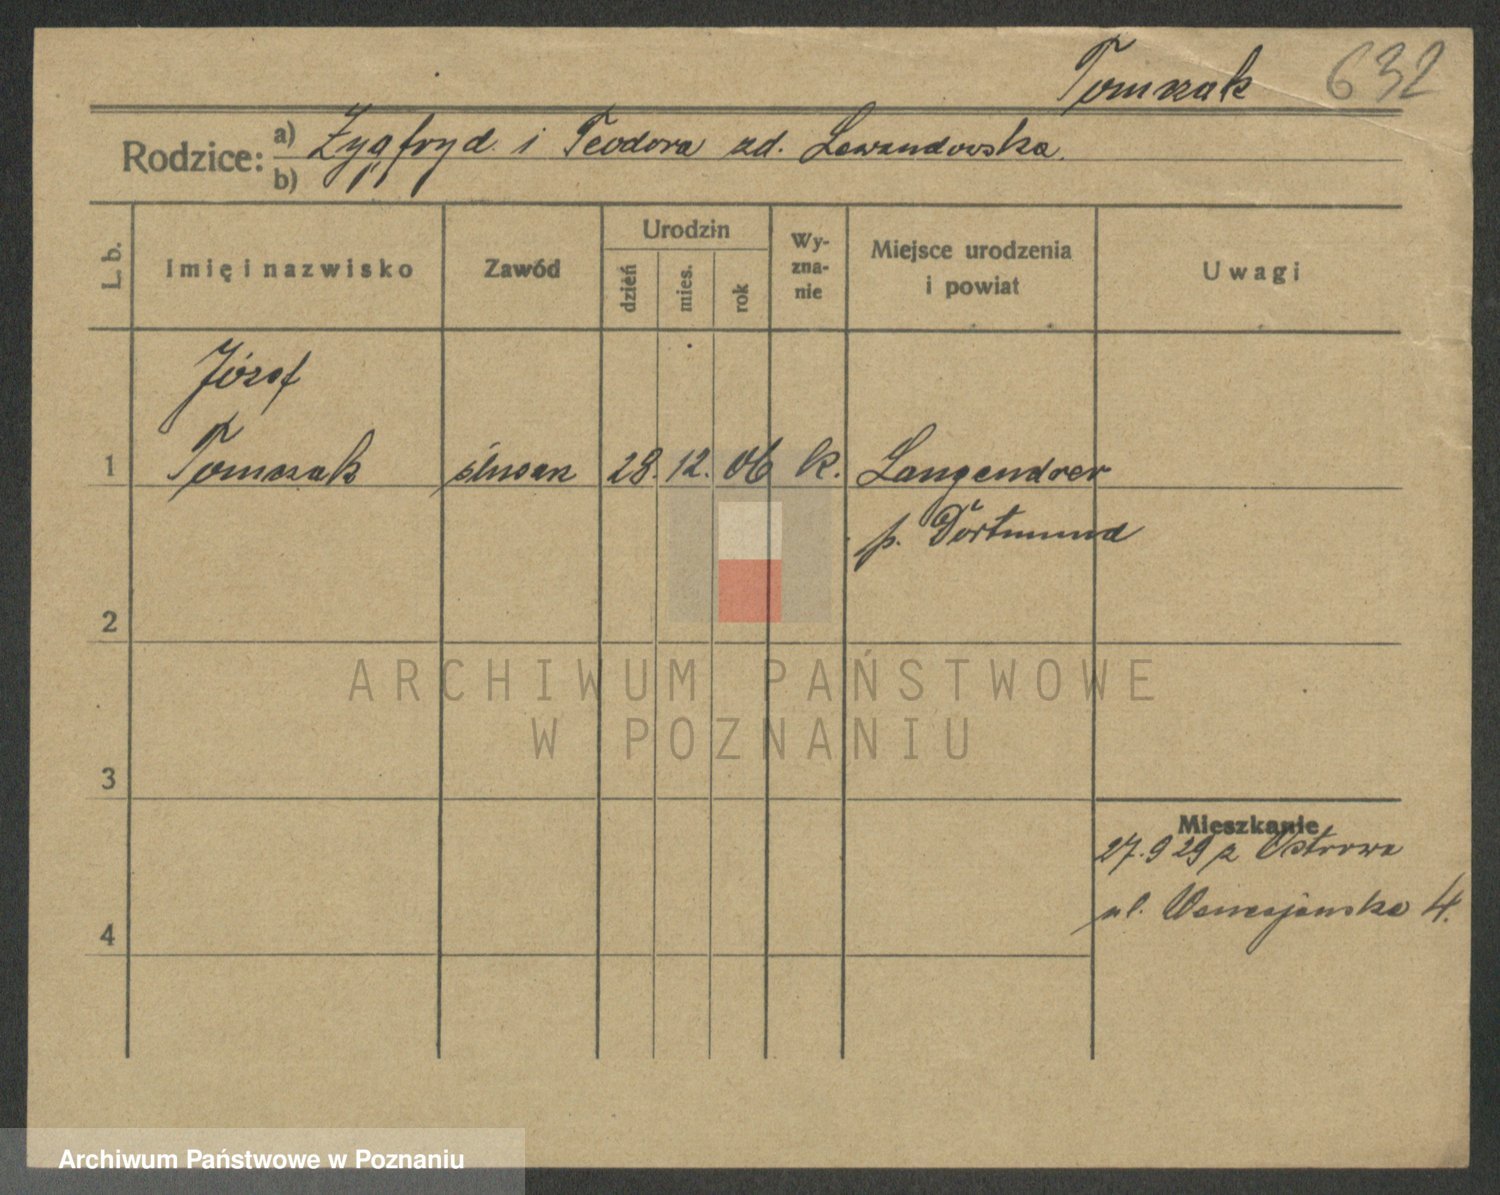 Tomszak 632
Rodzice: a) Zygfryd i Teodora zd. Lewandowska.
b)
L. b. Imię i nazwisko Zawód Urodzin Wy-zna-nie Miejsce urodzenia i powiat Uwagi
dzień mies. rok
Józef
1 Tomszak ślusarz 28. 12. 06 k. Langendreer
p. Dortmund
2
ARCHIWUM PAŃSTWOWE
W POZNANIU
3
Mieszkanie
27.9 29 z Ostrowa
ul. 4.
4
Archiwum Państwowe w Poznaniu